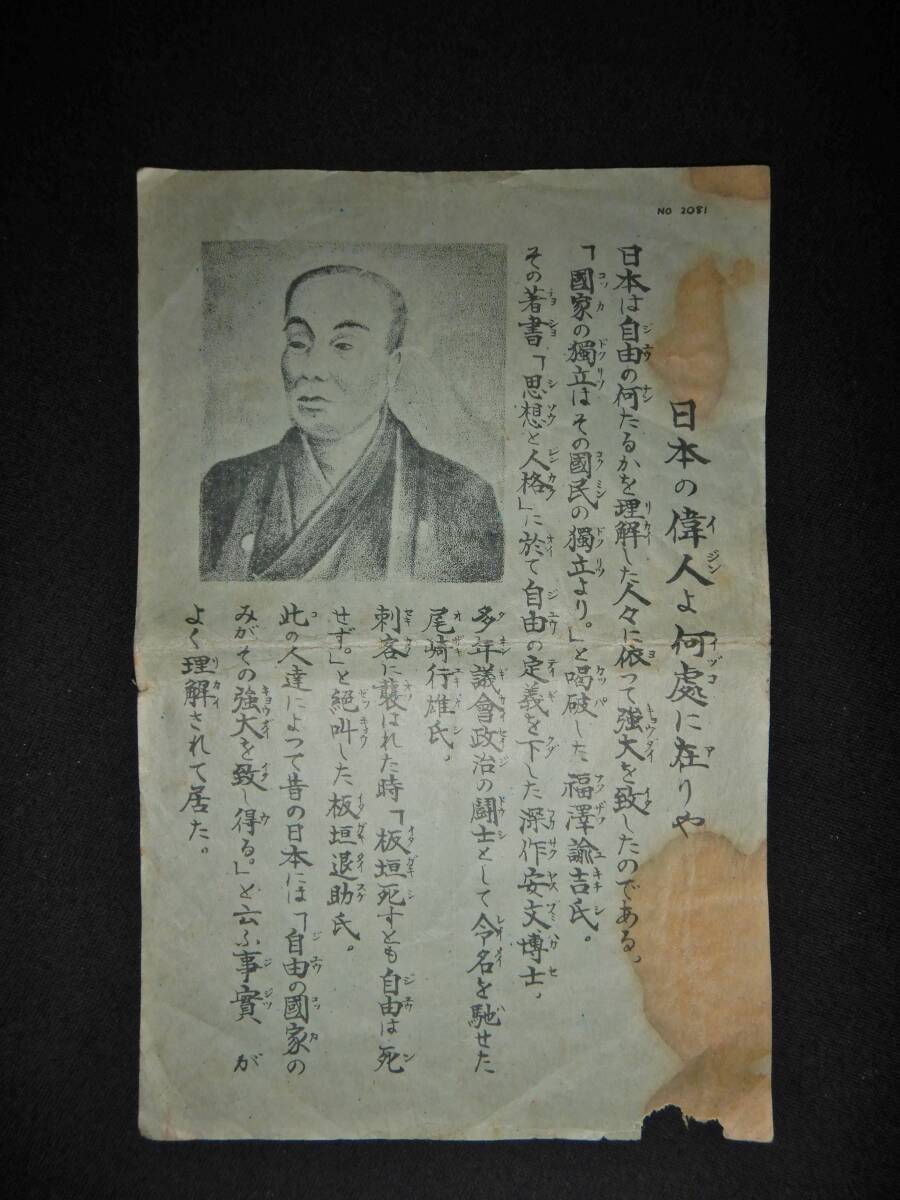 NO 2081
日本の偉人よ何處に在りや
日本は自由の何たるかを理解した人々に依って強大を致したのである。
「國家の獨立はその國民の獨立より。」と喝破した福澤諭吉氏。
その著書「思想と人格」に於て自由の定義を下した深作安文博士、
多年議會政治の闘士として令名を馳せた
尾崎行雄氏、
刺客に襲はれた時「板垣死すとも自由は死
せず。」と絕叫した板垣退助氏。
此の人達によつて昔の日本には「自由の國家の
みがその強大を致し得る。」と云ふ事實が
よく理解されて居た。